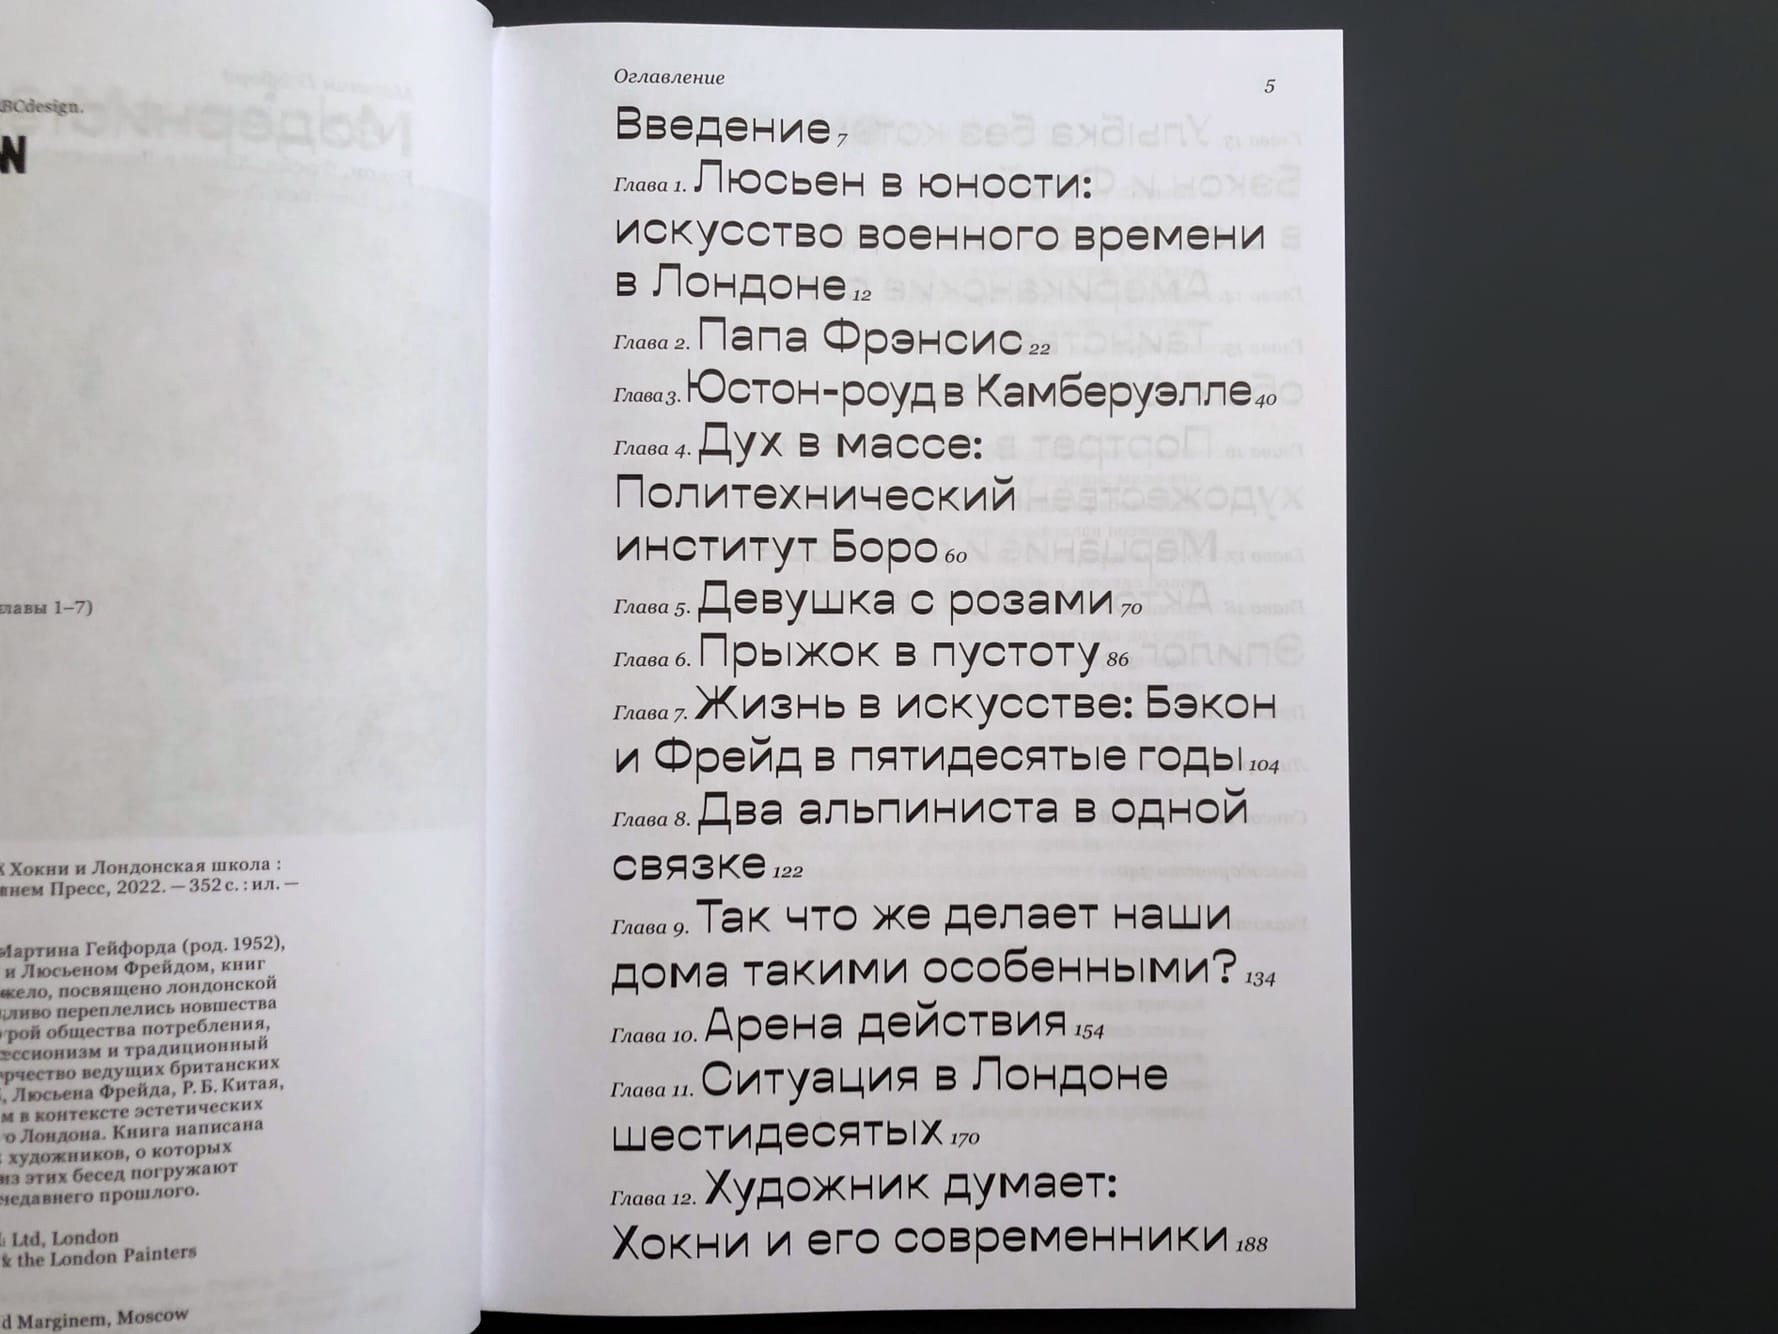 BCdesign.
главы 1–7)
Хокни и Лондонская школа :
Пресс, 2022. — 352 с. : ил. —
Мартина Гейфорда (род. 1952),
и Люсьеном Фрейдом, книг
посвящено лондонской
переплелись новшества
общества потребления,
и традиционный
ведущих британских
Люсьена Фрейда, Р. Б. Китая,
в контексте эстетических
Лондона. Книга написана
художников, о которых
из этих бесед погружают
недавнего прошлого.
Ltd, London
& the London Painters
Marginem, Moscow
Оглавление
5
Введение 7
Глава 1. Люсьен в юности:
искусство военного времени
в Лондоне 12
Глава 2. Папа Фрэнсис 22
Глава 3. Юстон-роуд в Камберуэлле 40
Глава 4. Дух в массе:
Политехнический
институт Боро 60
Глава 5. Девушка с розами 70
Глава 6. Прыжок в пустоту 86
Глава 7. Жизнь в искусстве: Бэкон
и Фрейд в пятидесятые годы 104
Глава 8. Два альпиниста в одной
связке 122
Глава 9. Так что же делает наши
дома такими особенными? 134
Глава 10. Арена действия 154
Глава 11. Ситуация в Лондоне
шестидесятых 170
Глава 12. Художник думает:
Хокни и его современники 188